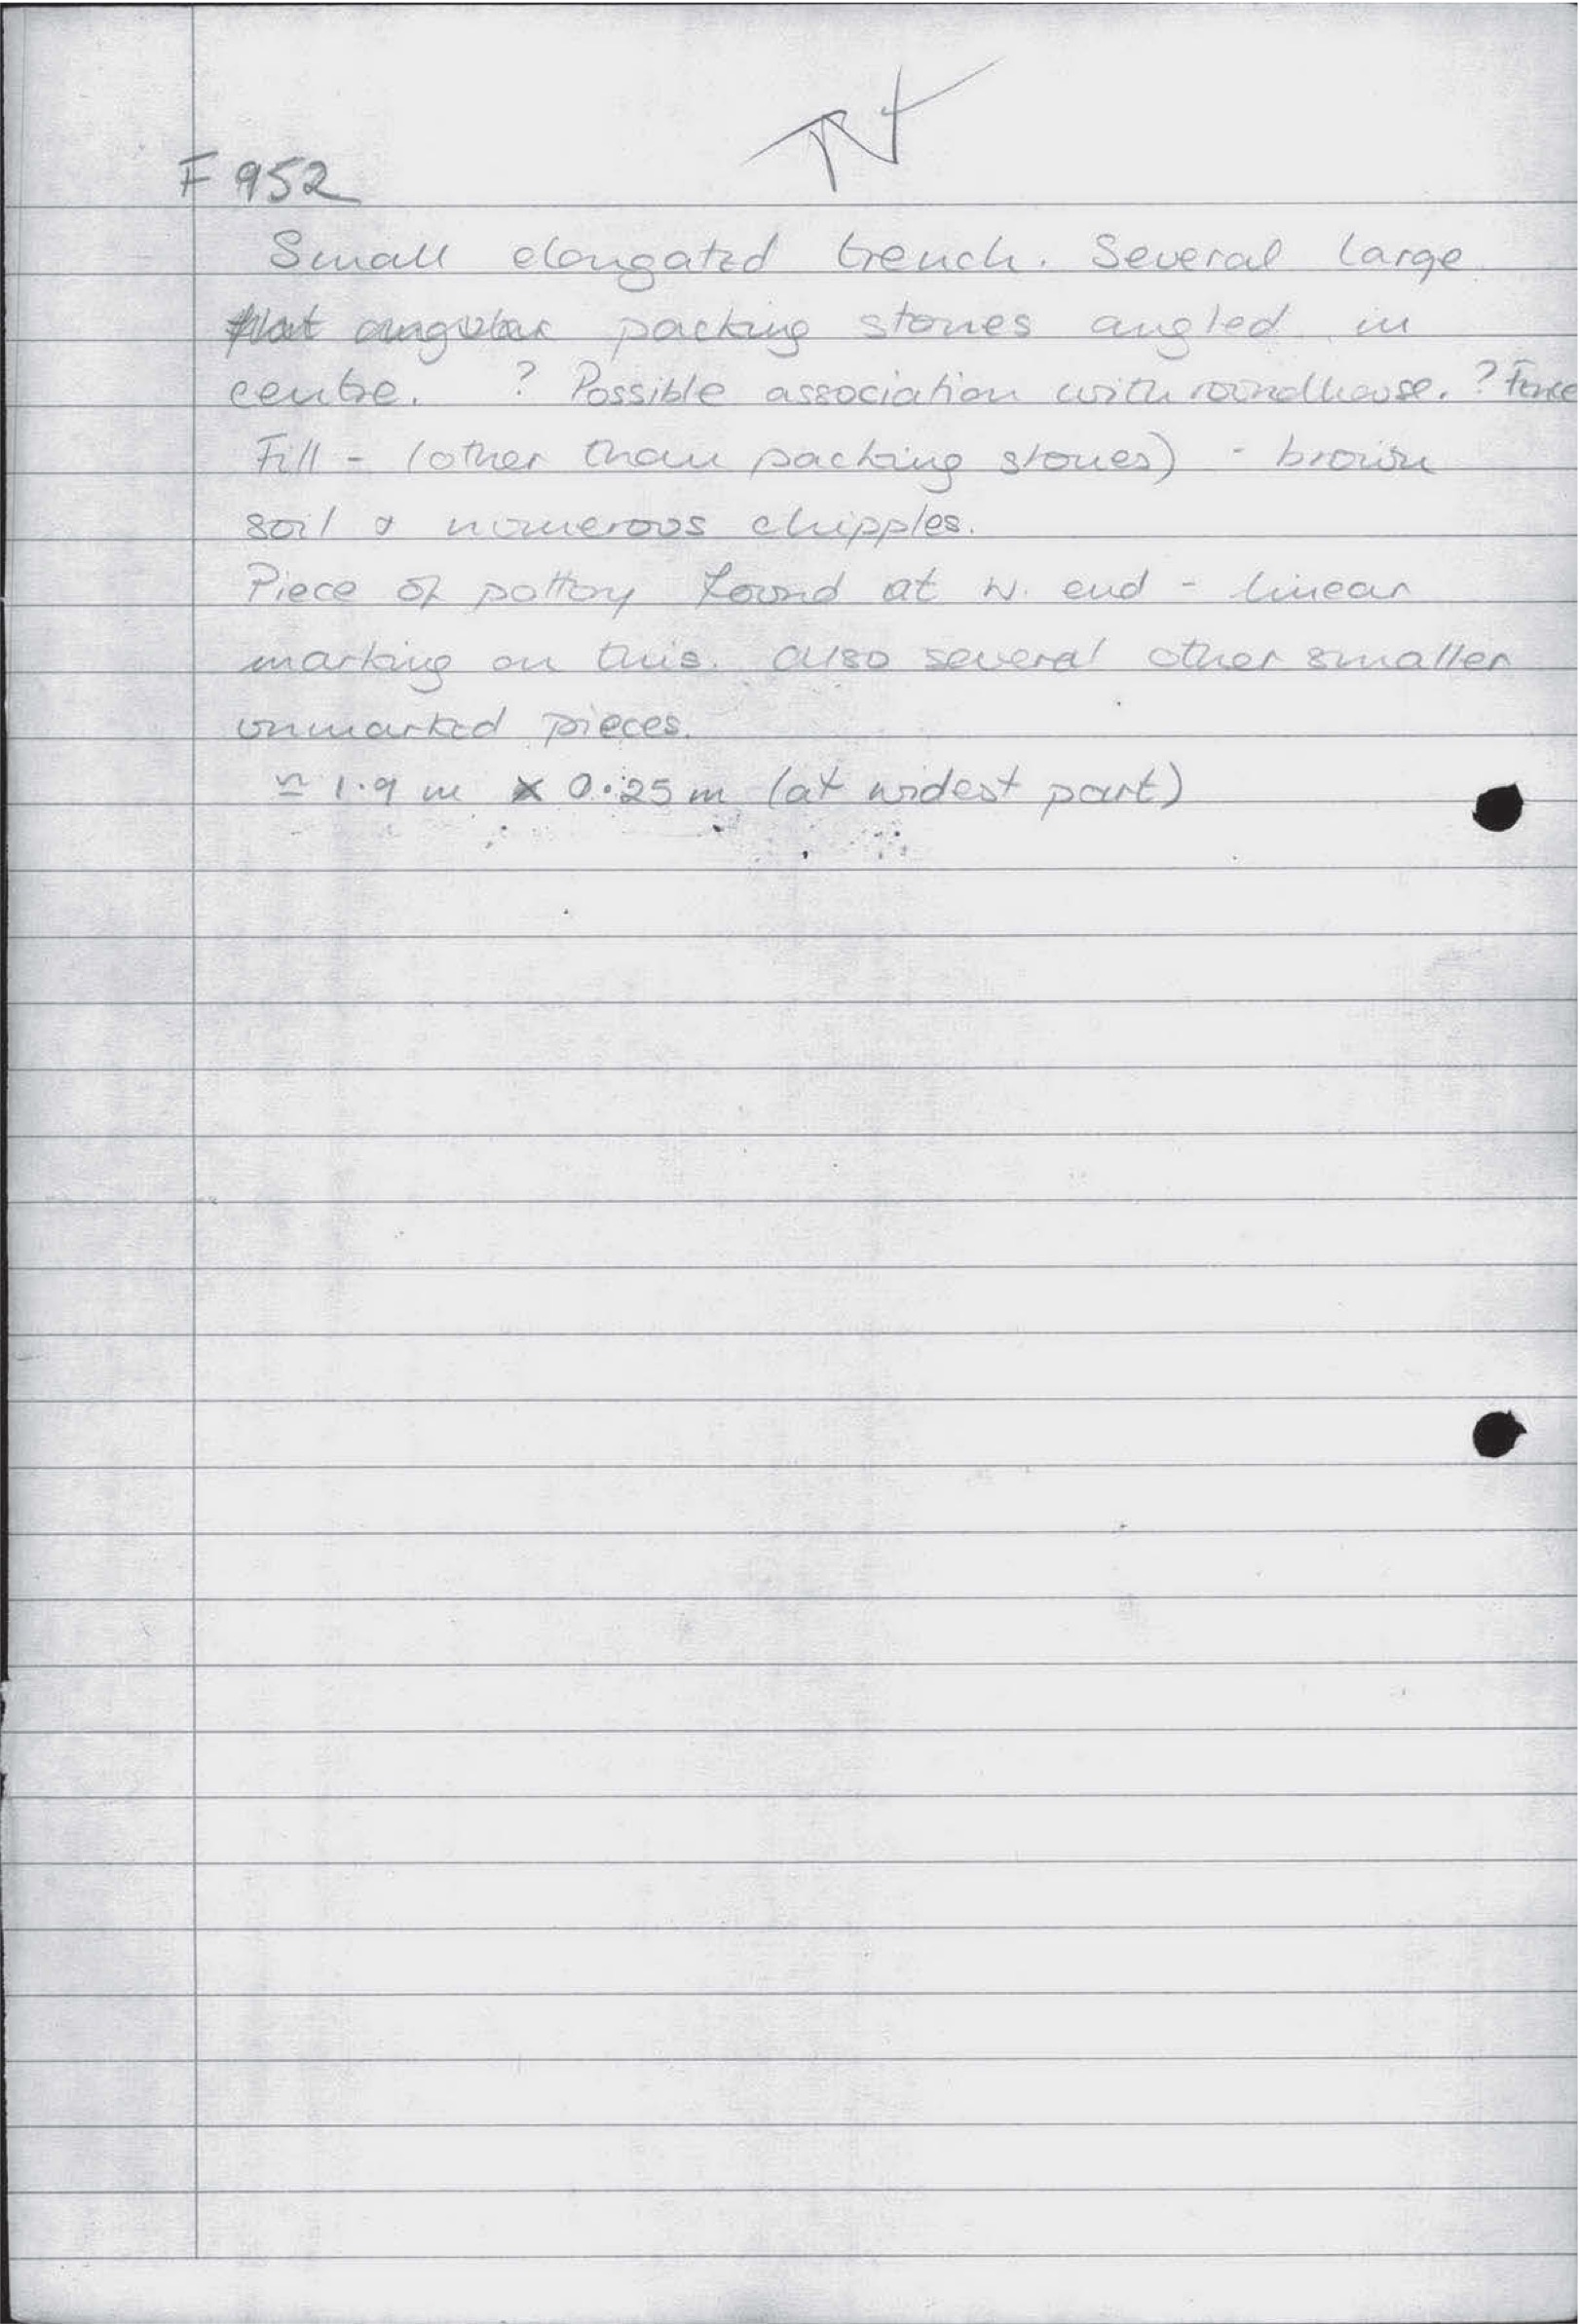 F 952
Small elongated trench. Several large
flat angular packing stones angled in
centre. ? Possible association with roundhouse. ? Fence
Fill - (other than packing stones) - brown
soil & numerous chipples.
Piece of pottery found at W. end - linear
marking on this. Also several other smaller
unmarked pieces.
≃ 1.9 m x 0.25 m (at widest part)